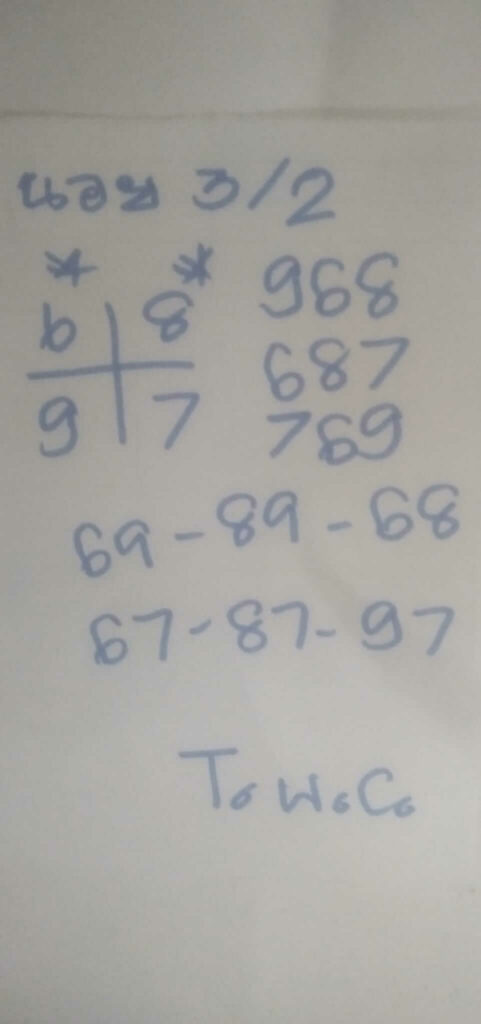 นอย 3/2
* *
6 8
9 7
968
687
769
69-89-68
67-87-97
T.W.C.